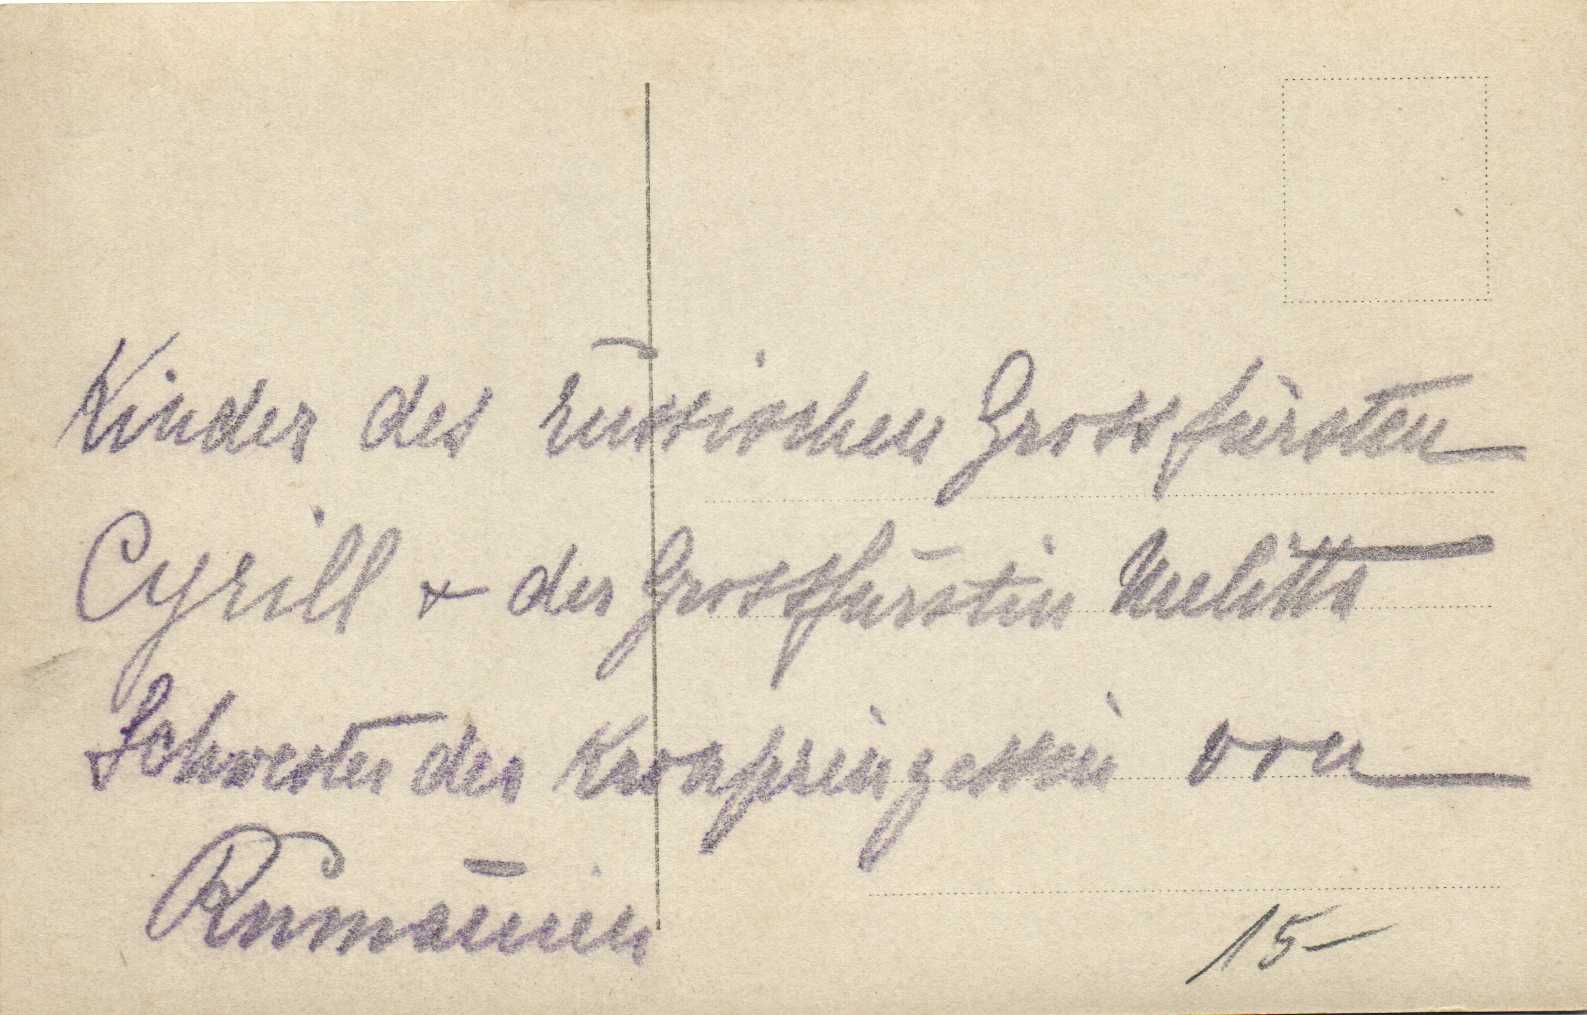 Kinder des russischen Grossfürsten
Cyrill + der Grossfürstin Melitta
Schwester der Kronprinzessin von
Rumänien
15-